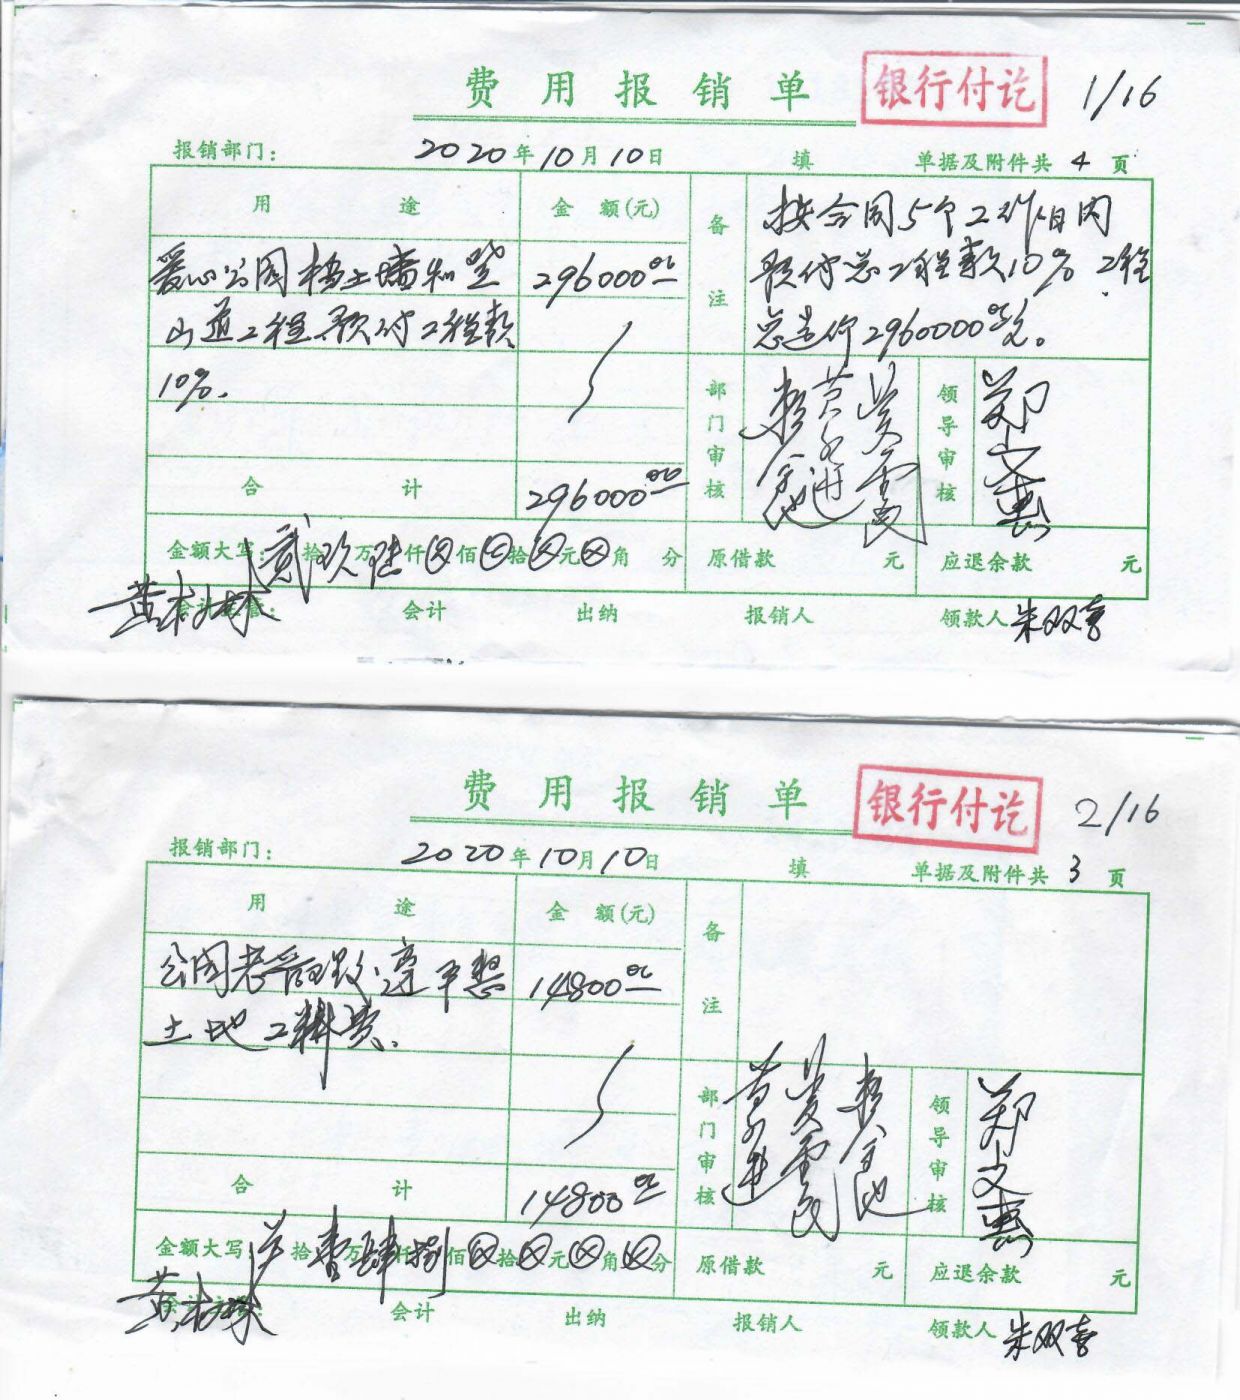 费用报销单
银行付讫
1/16
报销部门：
2020年10月10日
填
单据及附件共 4 页
用途
金额(元)
备注
按合同5个工作日内
预付总工程款10%工程
总造价2960000元。
爱心公园档土墙和登
296000
山道工程预付工程款
10%.
部门审核
领导审核
郑文惠
合计
296000
金额大写：贰拾玖万陆仟⊗佰⊗拾⊗元⊗角 分
原借款 元
应退余款 元
会计
出纳
报销人
领款人 朱双喜
费用报销单
银行付讫
2/16
报销部门：
2020年10月10日
填
单据及附件共 3 页
用途
金额(元)
备注
14800
土地工料费.
部门审核
领导审核
郑文惠
合计
14800
金额大写 拾壹万肆仟捌佰⊗拾⊗元⊗角⊗分
原借款 元
应退余款 元
会计
出纳
报销人
领款人 朱双喜